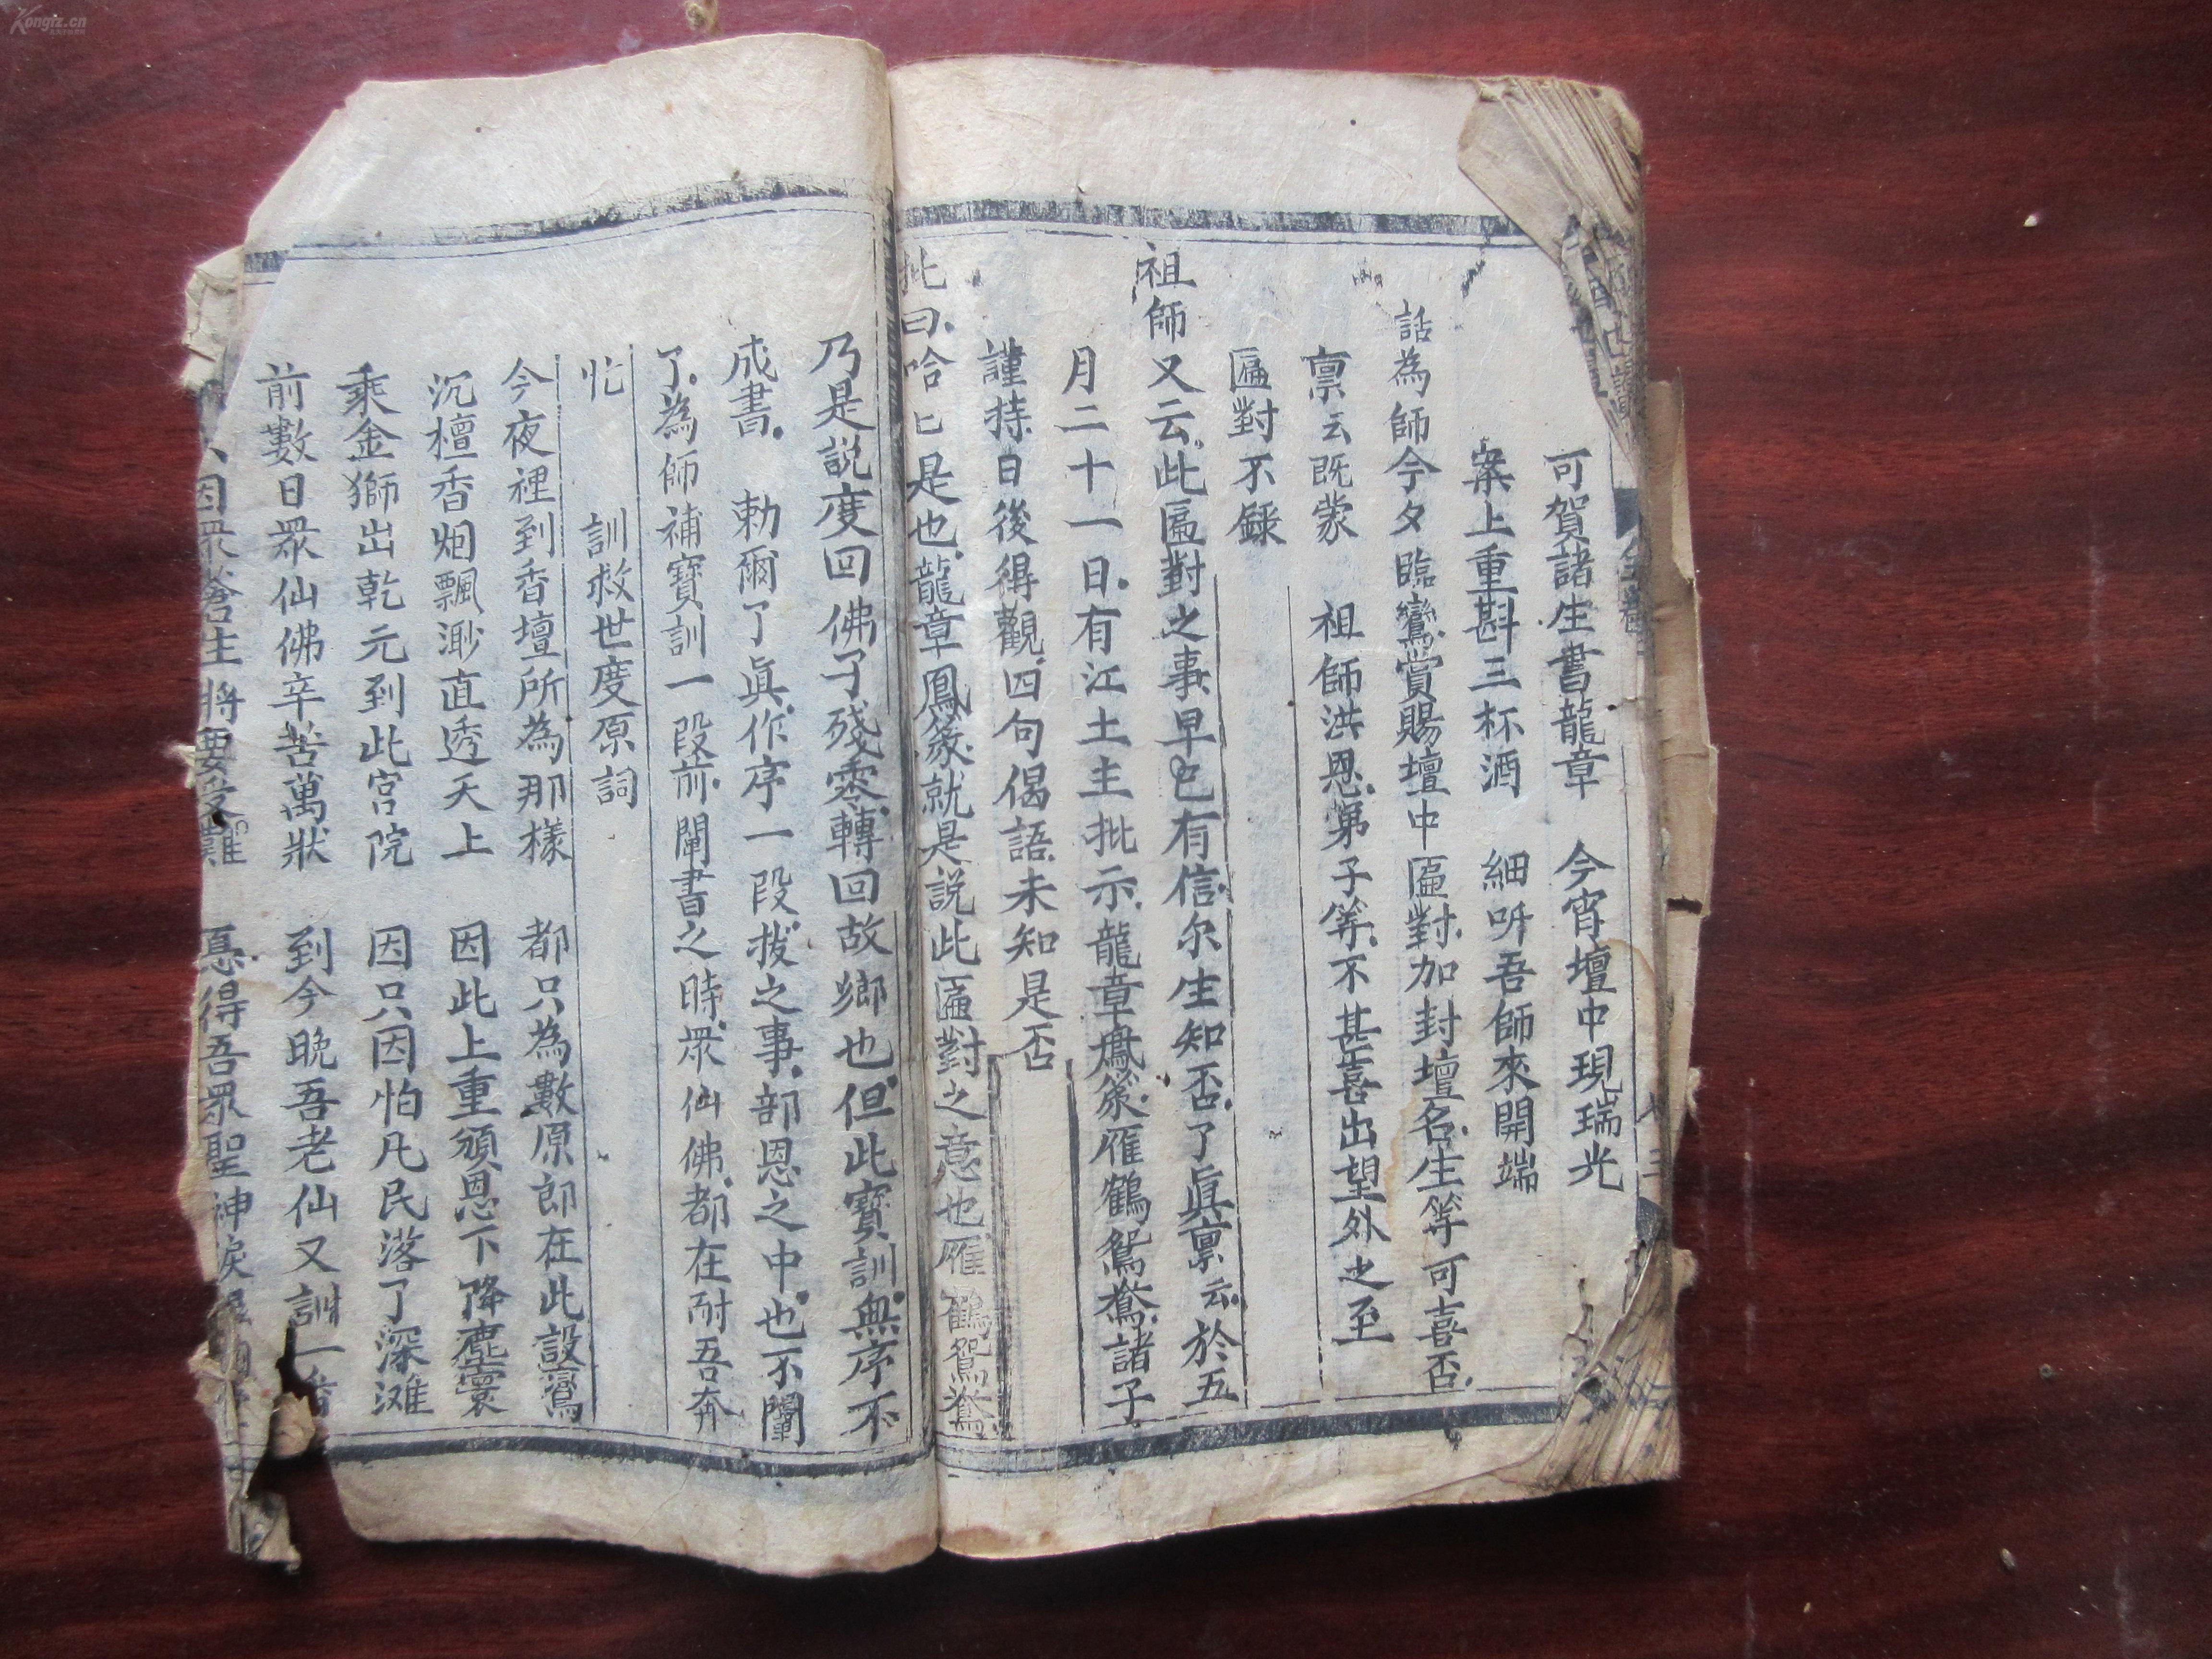 可賀諸生書龍章 今宵壇中現瑞光
案上重斟三杯酒 細吽吾師來開端
話為師今夕臨鸞賞賜壇中匾對加封壇名生等可喜否
禀云既蒙 祖師洪恩第子等不甚喜出望外之至
匾對不録
祖師又云此匾對之事早已有信尔生知否了眞禀云於五
月二十一日有江土主批示龍章鳳篆雁鶴鴛鴦諸子
謹持日後得觀四句偈語未知是否
批曰哈匕是也龍章鳳篆就是説此匾對之意也雁鶴鴛鴦
乃是説度回佛子殘零轉回故鄉也但此寶訓無序不
成書 勅爾了眞作序一段拔之事部恩之中也不闡
了為師補寶訓一段前闡書之時衆仙佛都在耐吾奔
忙 訓救世度原詞
今夜裡到香壇所為那樣 都只為數原郎在此設鸞
沉檀香烟飄渺直透天上 因此上重頒恩下降塵寰
乘金獅出乾元到此宮院 因只因怕凡民落了深灘
前數日衆仙佛辛苦萬狀 到今晚吾老仙又訓一
因衆蒼生將要受難 惪得吾衆聖神淚
Kongfz.cn